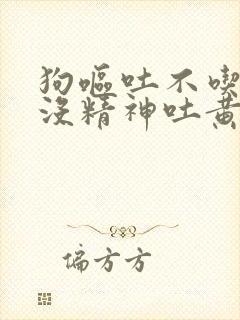 狗嘔吐不喫
沒精神吐黃
偏方方